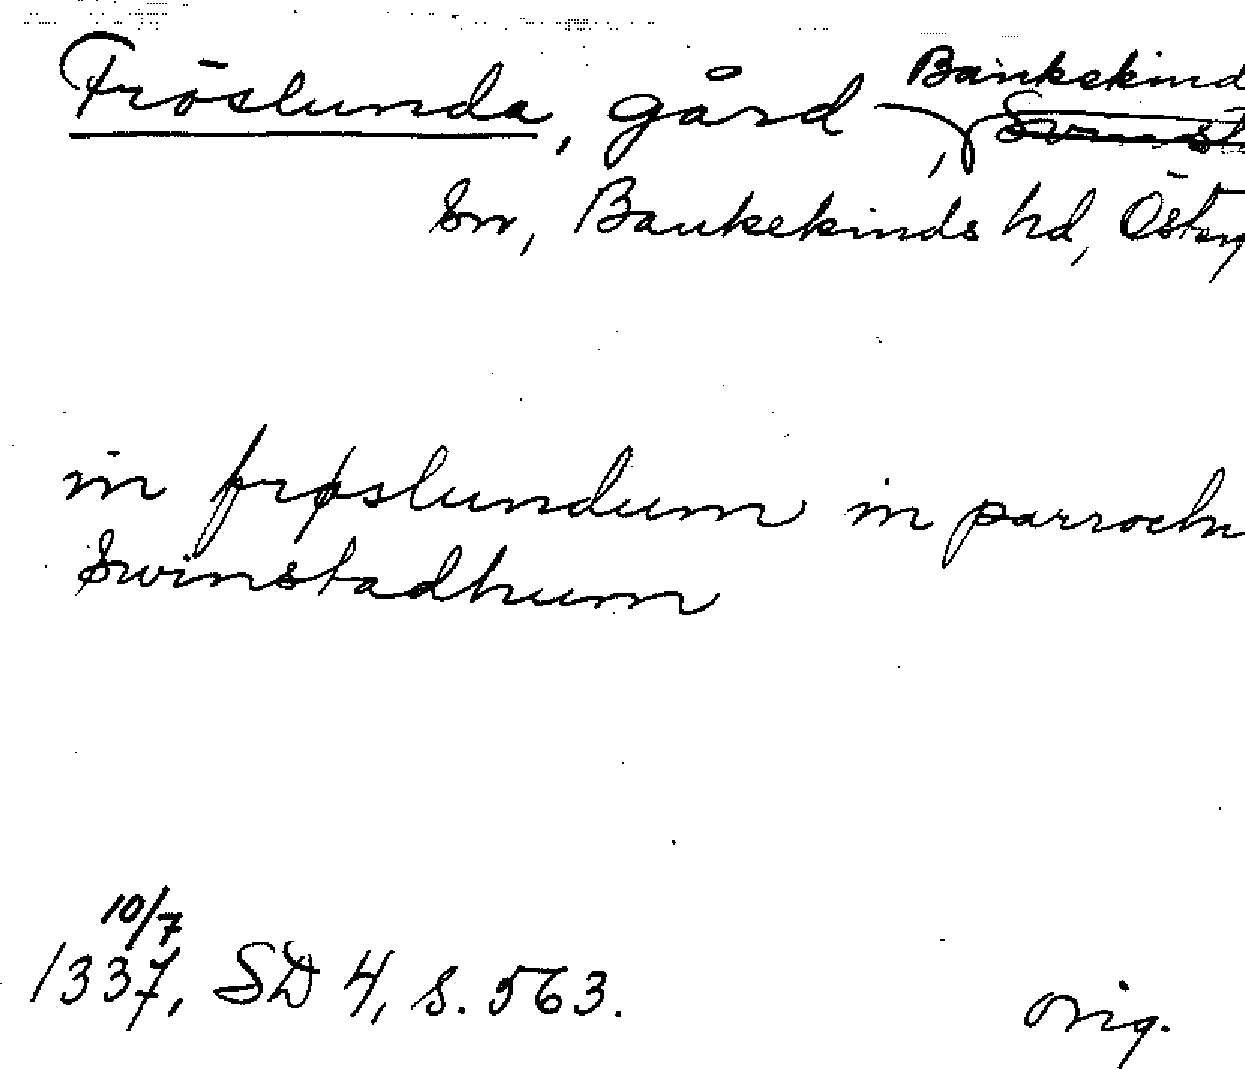 Fröslunda, gård, Bankekind
sn, Bankekinds hd, Österg
in frøslundum in parroch
Swinstadhum
10/7
1337, SD 4, s. 563.
orig.